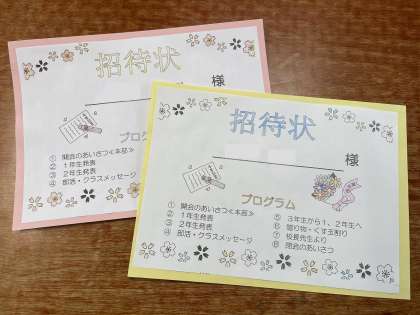 招待状
様
プログラム
① 開会のあいさつ≪本部≫
② 1年生発表
③ 2年生発表
④ 部活・クラスメッセージ
招待状
様
プログラム
① 開会のあいさつ≪本部≫
② 1年生発表
③ 2年生発表
④ 部活・クラスメッセージ
⑤ 3年生から1、2年生へ
⑥ 贈り物・くす玉割り
⑦ 校長先生より
⑧ 閉会のあいさつ